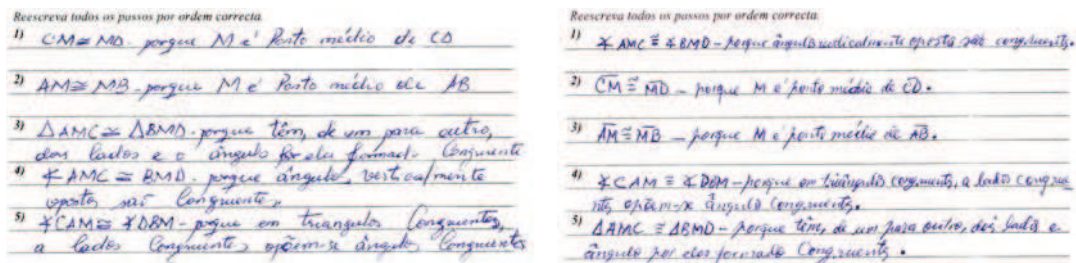 Reescreva todos os passos por ordem correcta.
1) CM ≅ MD - porque M é Ponto médio de CD
2) AM ≅ MB - porque M é Ponto médio de AB
3) △AMC ≅ △BMD - porque têm, de um para outro,
dois lados e o ângulo por eles formado Congruente
4) ∢AMC ≅ BMD - porque ângulo, verticalmente
opostos são Congruente,
5) ∢CAM ≅ ∢DBM - porque em triangulos Congruentes,
a lados Congruentes opõem-se ângulos Congruentes
Reescreva todos os passos por ordem correcta.
1) ∢AMC ≅ ∢BMD - porque ângulos verticalmente opostos são congruents.
2) CM ≅ MD - porque M é ponto médio de CD.
3) AM ≅ MB - porque M é ponto médio de AB.
4) ∢CAM ≅ ∢DBM - porque em triângulos congruents, a lados congrue
nts opõem-se ângulos Congruents.
5) △AMC ≅ △BMD - porque têm, de um para outro, dois lados e
ângulo por eles formado Congruents.